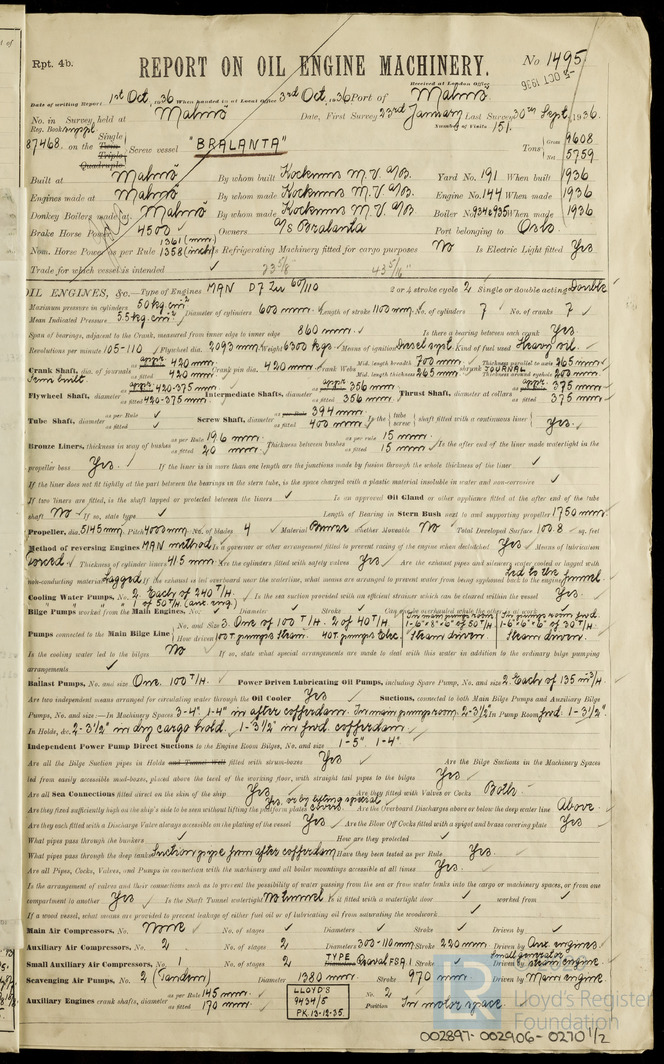 Rpt. 4b.
REPORT ON OIL ENGINE MACHINERY.
No 1495
Received at London Office 5- OCT 1936
Date of writing Report 1st Oct, 1936 When handed in at Local Office 3rd Oct, 1936 Port of Malmö
No. in Survey held at Malmö Date, First Survey 23rd January Last Survey 30th Sept, 1936.
Reg. Book. Number of Visits 151.
87468. on the Single Twin Triple Quadruple Screw vessel "BRALANTA" Tons Gross 9608 Net 5759
Built at Malmö By whom built Kockums M.V. A/B. Yard No. 191 When built 1936
Engines made at Malmö By whom made Kockums M.V. A/B. Engine No. 144 When made 1936
Donkey Boilers made at Malmö By whom made Kockums M.V. A/B Boiler No. 934 & 935 When made 1936
Brake Horse Power 4500 Owners A/S Bralanta Port belonging to Oslo
Nom. Horse Power as per Rule 1361 (mm) 1358 (inch) Is Refrigerating Machinery fitted for cargo purposes No Is Electric Light fitted Yes
Trade for which vessel is intended ✓ 23 5/8 43 5/16"
OIL ENGINES, &c.—Type of Engines MAN D7Zu 60/110 2 or 4 stroke cycle 2 Single or double acting Double
Maximum pressure in cylinders 50 kg cm² Diameter of cylinders 600 mm. Length of stroke 1100 mm. No. of cylinders 7 No. of cranks 7
Mean Indicated Pressure 5.5 kg cm²
Span of bearings, adjacent to the Crank, measured from inner edge to inner edge 860 mm. Is there a bearing between each crank Yes
Revolutions per minute 105-110 Flywheel dia. 2093 mm. Weight 6300 kgs. Means of ignition Diesel syst. Kind of fuel used Heavy oil.
Crank Shaft, dia. of journals appr. 420 mm. as fitted 420 mm. Crank pin dia. 420 mm. Crank Webs Mid. length breadth 700 mm. Mid. length thickness 265 mm. shrunk JOURNAL Thickness parallel to axis 265 mm. Thickness around eyehole 200 mm.
Semi built
Flywheel Shaft, diameter appr. 420-375 mm. as fitted 420-375 mm. Intermediate Shafts, diameter appr. 356 mm as fitted 356 mm. Thrust Shaft, diameter at collars appr. 375 mm as fitted 375 mm.
Tube Shaft, diameter as per Rule ✓ as fitted ✓ Screw Shaft, diameter as per Rule 394 mm. as fitted 400 mm. Is the tube screw shaft fitted with a continuous liner Yes.
Bronze Liners, thickness in way of bushes as per Rule 19.6 mm. as fitted 20 mm. Thickness between bushes as per rule 15 mm. as fitted 15 mm. Is the after end of the liner made watertight in the
propeller boss Yes. If the liner is in more than one length are the junctions made by fusion through the whole thickness of the liner ✓
If the liner does not fit tightly at the part between the bearings in the stern tube, is the space charged with a plastic material insoluble in water and non-corrosive ✓
If two liners are fitted, is the shaft lapped or protected between the liners ✓ Is an approved Oil Gland or other appliance fitted at the after end of the tube
shaft No If so, state type ✓ Length of Bearing in Stern Bush next to and supporting propeller 1750 mm.
Propeller, dia. 5145 mm. Pitch 4000 mm. No. of blades 4 Material Bronze whether Moveable No Total Developed Surface 100.8 sq. feet
Method of reversing Engines MAN method. Is a governor or other arrangement fitted to prevent racing of the engine when declutched Yes Means of lubrication
forced Thickness of cylinder liners 41.5 mm. Are the cylinders fitted with safety valves Yes Are the exhaust pipes and silencers water cooled or lagged with
non-conducting material Lagged If the exhaust is led overboard near the waterline, what means are arranged to prevent water being syphoned back to the engine Led to the funnel
Cooling Water Pumps, No. 2. Each of 240 T/H. Is the sea suction provided with an efficient strainer which can be cleared within the vessel Yes.
1 of 50 T/H. (aux. eng.)
Bilge Pumps worked from the Main Engines, No. ✓ Diameter ✓ Stroke ✓ Can one be overhauled while the other is at work
Pumps connected to the Main Bilge Line No. and Size 3. One of 100 T/H. 2 of 40 T/H. How driven 100 T pump Steam. 40 T pumps Elec. In main pump room 1-6"×8"×6" of 50 T/H Steam driven. In pump room fwd. 1-6"×6"×6" of 30 T/H. Steam driven.
Is the cooling water led to the bilges No If so, state what special arrangements are made to deal with this water in addition to the ordinary bilge pumping
arrangements ✓
Ballast Pumps, No. and size One. 100 T/H. Power Driven Lubricating Oil Pumps, including Spare Pump, No. and size 2. Each of 135 m³/H.
Are two independent means arranged for circulating water through the Oil Cooler Yes Suctions, connected to both Main Bilge Pumps and Auxiliary Bilge
Pumps, No. and size:—In Machinery Spaces 3-4" 1-4" in after cofferdam. In main pumproom: 2-3½" In Pump Room fwd: 1-3½".
In Holds, &c. 2-3½" in dry cargo hold. 1-3½" in fwd. cofferdam.
Independent Power Pump Direct Suctions to the Engine Room Bilges, No. and size 1-5". 1-4".
Are all the Bilge Suction pipes in Holds and Tunnel Well fitted with strum-boxes Yes Are the Bilge Suctions in the Machinery Spaces
led from easily accessible mud-boxes, placed above the level of the working floor, with straight tail pipes to the bilges Yes
Are all Sea Connections fitted direct on the skin of the ship Yes Are they fitted with Valves or Cocks Both.
Are they fixed sufficiently high on the ship's side to be seen without lifting the platform plates Yes, or by lifting special covers. Are the Overboard Discharges above or below the deep water line Above.
Are they each fitted with a Discharge Valve always accessible on the plating of the vessel Yes Are the Blow Off Cocks fitted with a spigot and brass covering plate Yes
What pipes pass through the bunkers ✓ How are they protected ✓
What pipes pass through the deep tanks Suction pipe from after cofferdam Have they been tested as per Rule Yes.
Are all Pipes, Cocks, Valves, and Pumps in connection with the machinery and all boiler mountings accessible at all times Yes.
Is the arrangement of valves and their connections such as to prevent the possibility of water passing from the sea or from water tanks into the cargo or machinery spaces, or from one
compartment to another Yes Is the Shaft Tunnel watertight No tunnel Is it fitted with a watertight door ✓ worked from ✓
If a wood vessel, what means are provided to prevent leakage of either fuel oil or of lubricating oil from saturating the woodwork ✓
Main Air Compressors, No. None No. of stages ✓ Diameters ✓ Stroke ✓ Driven by ✓
Auxiliary Air Compressors, No. 2 No. of stages 2 Diameters 300-110 mm Stroke 220 mm. Driven by Aux. engines
Small Auxiliary Air Compressors, No. 1 No. of stages 2 TYPE Stroke ✓ Driven by Small generator
Scavenging Air Pumps, No. 2 (Tandem) Diameter 1380 mm. Stroke 970 mm. Driven by Main engine
Auxiliary Engines crank shafts, diameter as per Rule 145 mm. as fitted 170 mm. No. 2 Position In motor space.
LLOYD'S
9434/5
P.K. 13-12-35.
© 2020
LR
Lloyd's Register
Foundation
002897-002906-0270 1/2